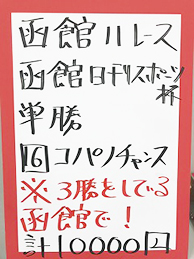 函館11レース
函館日刊スポーツ
杯
単勝
16 コパノチャンス
※3勝をしている
函館で!
計10000円